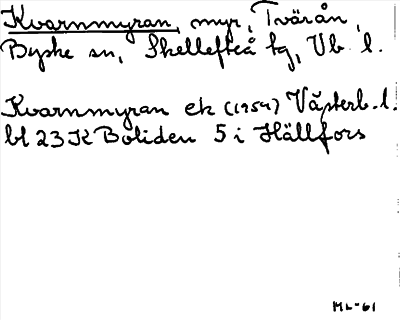 Kvarnmyran, myr, Tvärån,
Byske sn, Skellefteå tg, Vb. l.
Kvarnmyran ek (1954) Västerb. l.
bl 23 K Boliden 5 i Hällfors
ML-61